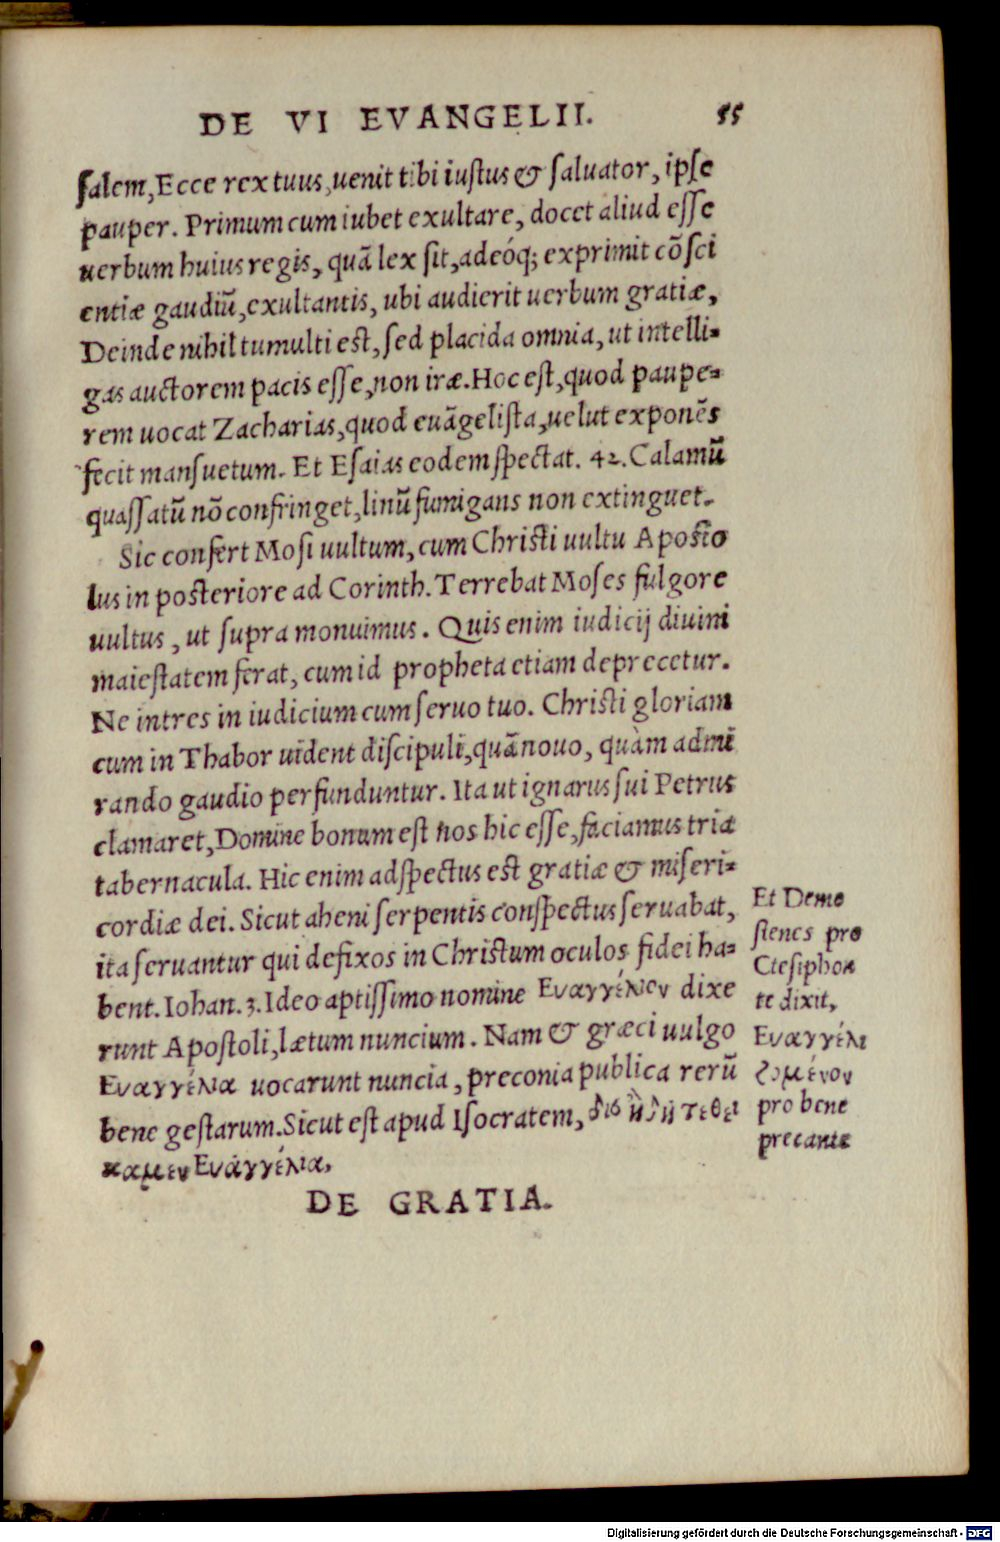 DE VI EVANGELII. 55
salem, Ecce rex tuus, uenit tibi iustus & saluator, ipse
pauper. Primum cum iubet exultare, docet aliud esse
uerbum huius regis, quã lex sit, adeóq; exprimit cõsci
entiæ gaudiũ, exultantis, ubi audierit uerbum gratiæ,
Deinde nihil tumulti est, sed placida omnia, ut intelli-
gas auctorem pacis esse, non iræ. Hoc est, quod paupe-
rem uocat Zacharias, quod euãgelista, uelut exponẽs
fecit mansuetum. Et Esaias eodem spectat. 42. Calamũ
quassatũ nõ confringet, linũ fumigans non extinguet.
Sic confert Mosi uultum, cum Christi uultu Aposto
lus in posteriore ad Corinth. Terrebat Moses fulgore
uultus, ut supra monuimus. Quis enim iudicij diuini
maiestatem ferat, cum id propheta etiam deprecetur.
Ne intres in iudicium cum seruo tuo. Christi gloriam
cum in Thabor uident discipuli, quã nouo, quàm admi
rando gaudio perfunduntur. Ita ut ignarus sui Petrus
clamaret, Domine bonum est nos hic esse, faciamus tria
tabernacula. Hic enim adspectus est gratiæ & miseri-
cordiæ dei. Sicut aheni serpentis conspectus seruabat,
ita seruantur qui defixos in Christum oculos fidei ha-
bent. Iohan. 3. Ideo aptissimo nomine Ευαγγέλιον dixe
runt Apostoli, lætum nuncium. Nam & græci uulgo
Ευαγγέλια uocarunt nuncia, preconia publica rerũ
bene gestarum. Sicut est apud Isocratem, δὶς ἤδη τεθύ
καμεν Ευἀγγέλια,
DE GRATIA.
Et Demo
stenes pro
Ctesiphon
te dixit,
Ευαγγέλι
ζομένον
pro bene
precante
Digitalisierung gefördert durch die Deutsche Forschungsgemeinschaft - DFG